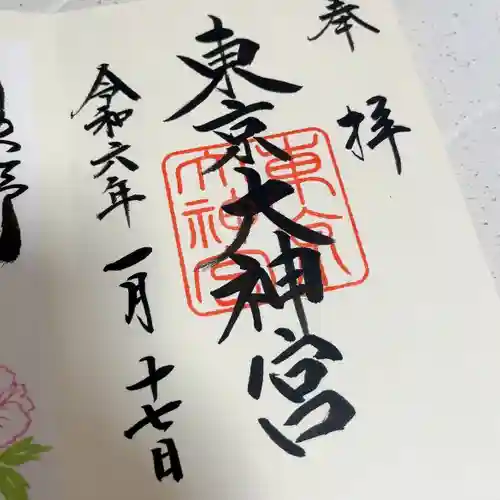 奉拝
東京大神宮
東京大神宮
令和六年一月十七日